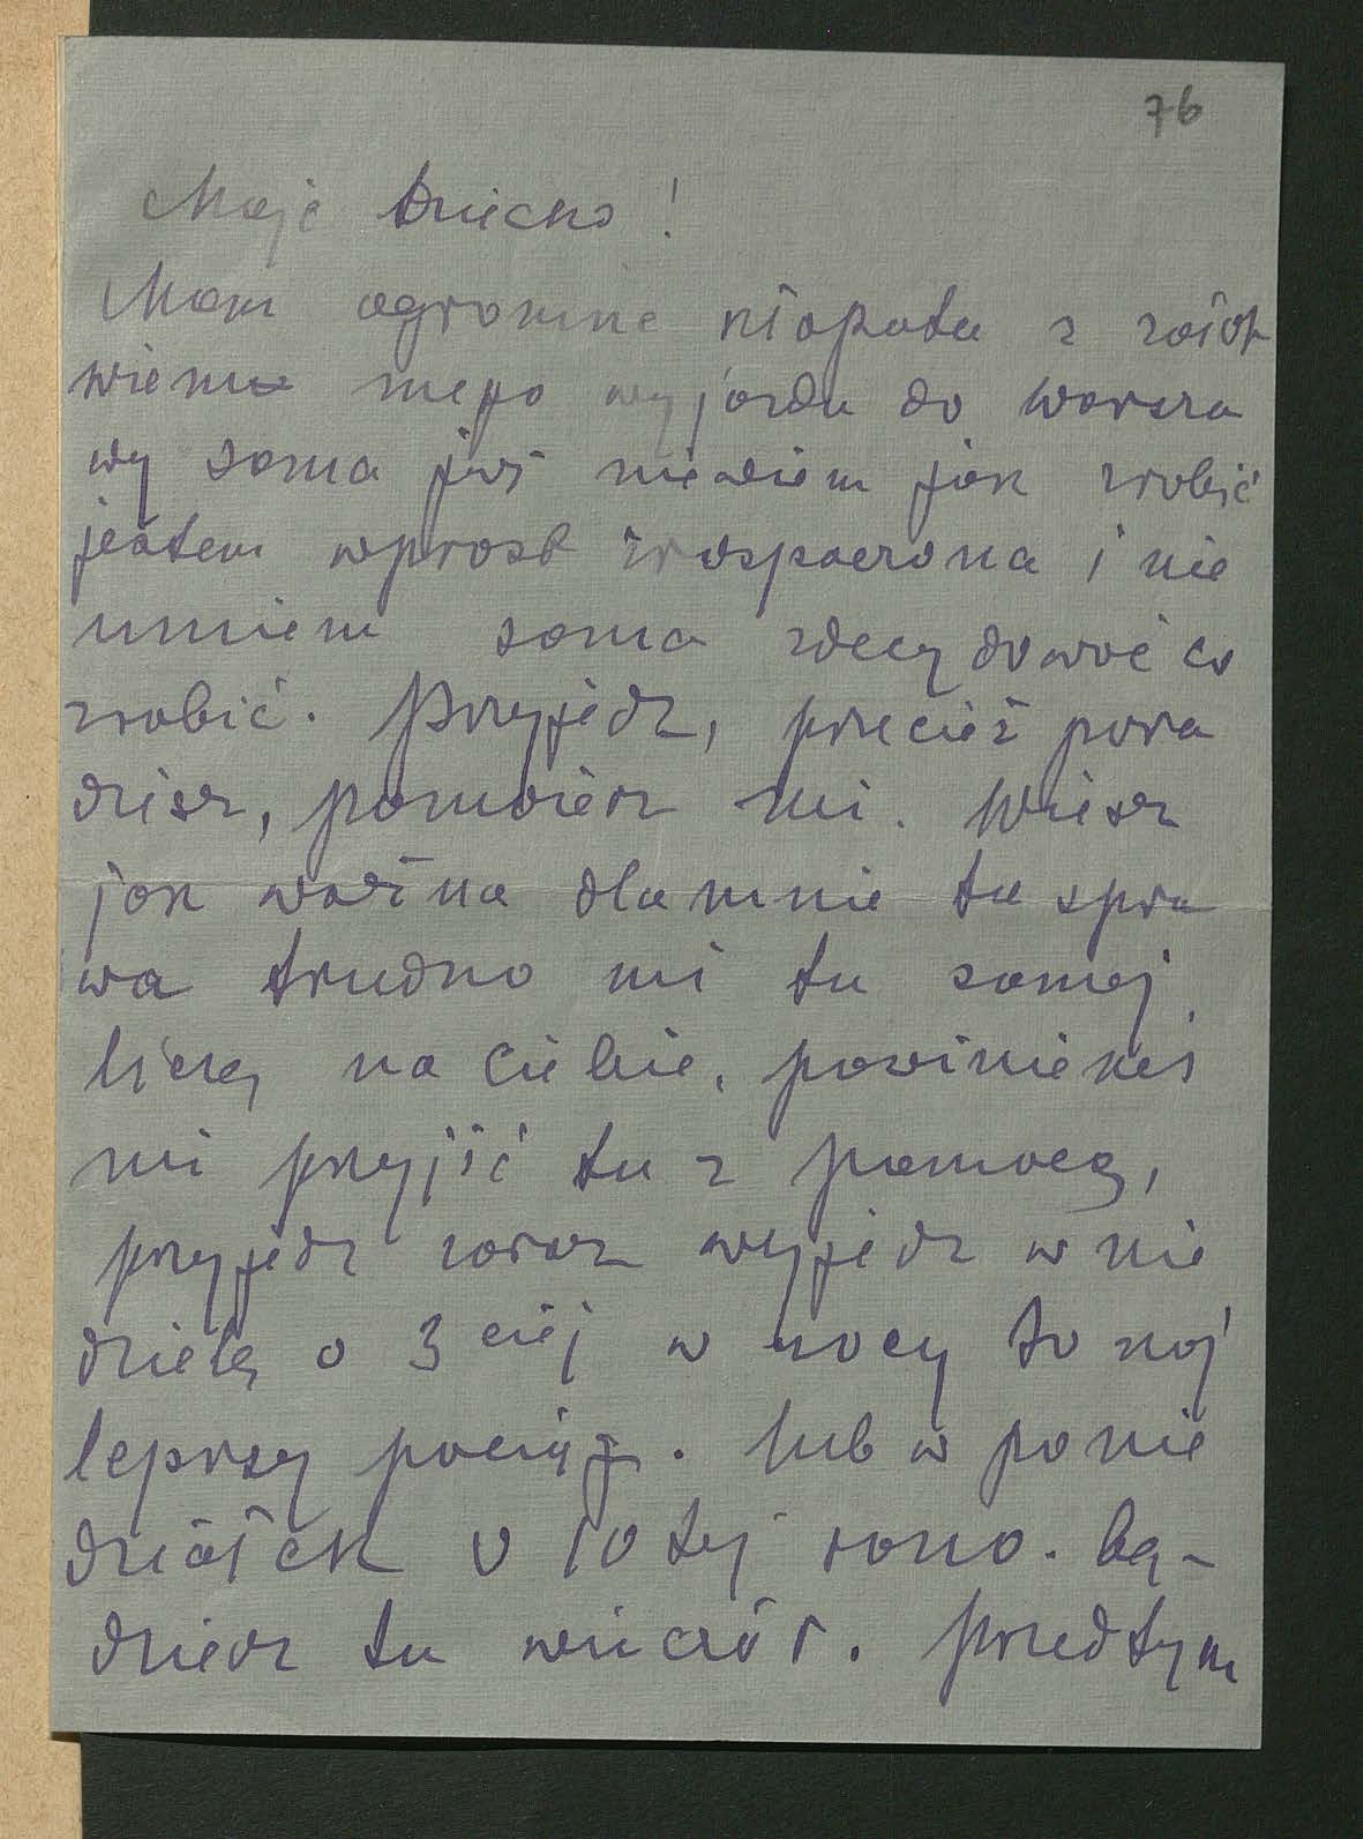 76
Moje Dziecko!
Mam ogromne kłopota z załat
wieniem mego wyjazdu do Warsza
wy sama już niewiem jak zrobić
jestem wprost zrospaczona i nie
umiem sama zdecydować co
zrobić. Przyjedz, przecież pora
dzisz, pomożesz mi. Wiesz
jak ważna dlamnie ta spra
wa trudno mi tu samej
liczę na Ciebie, powinieneś
mi przyjść tu z pomocą,
przyjedz zaraz wyjedz w nie
dzielę o 3ciej w nocy to naj
leprszy pociąg. lub w ponie
działek o 10tej rano. bę-
dziesz tu wieczór. Przedtym